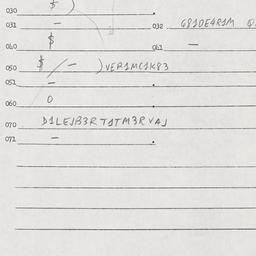 030 $ )
031 – 032 G810E4R1M
040 $ 041 —
050 $ / – ) VER1MC1K83
051 –
060 0
070 D1LEJB3R TJTM3R VAJ
071 –